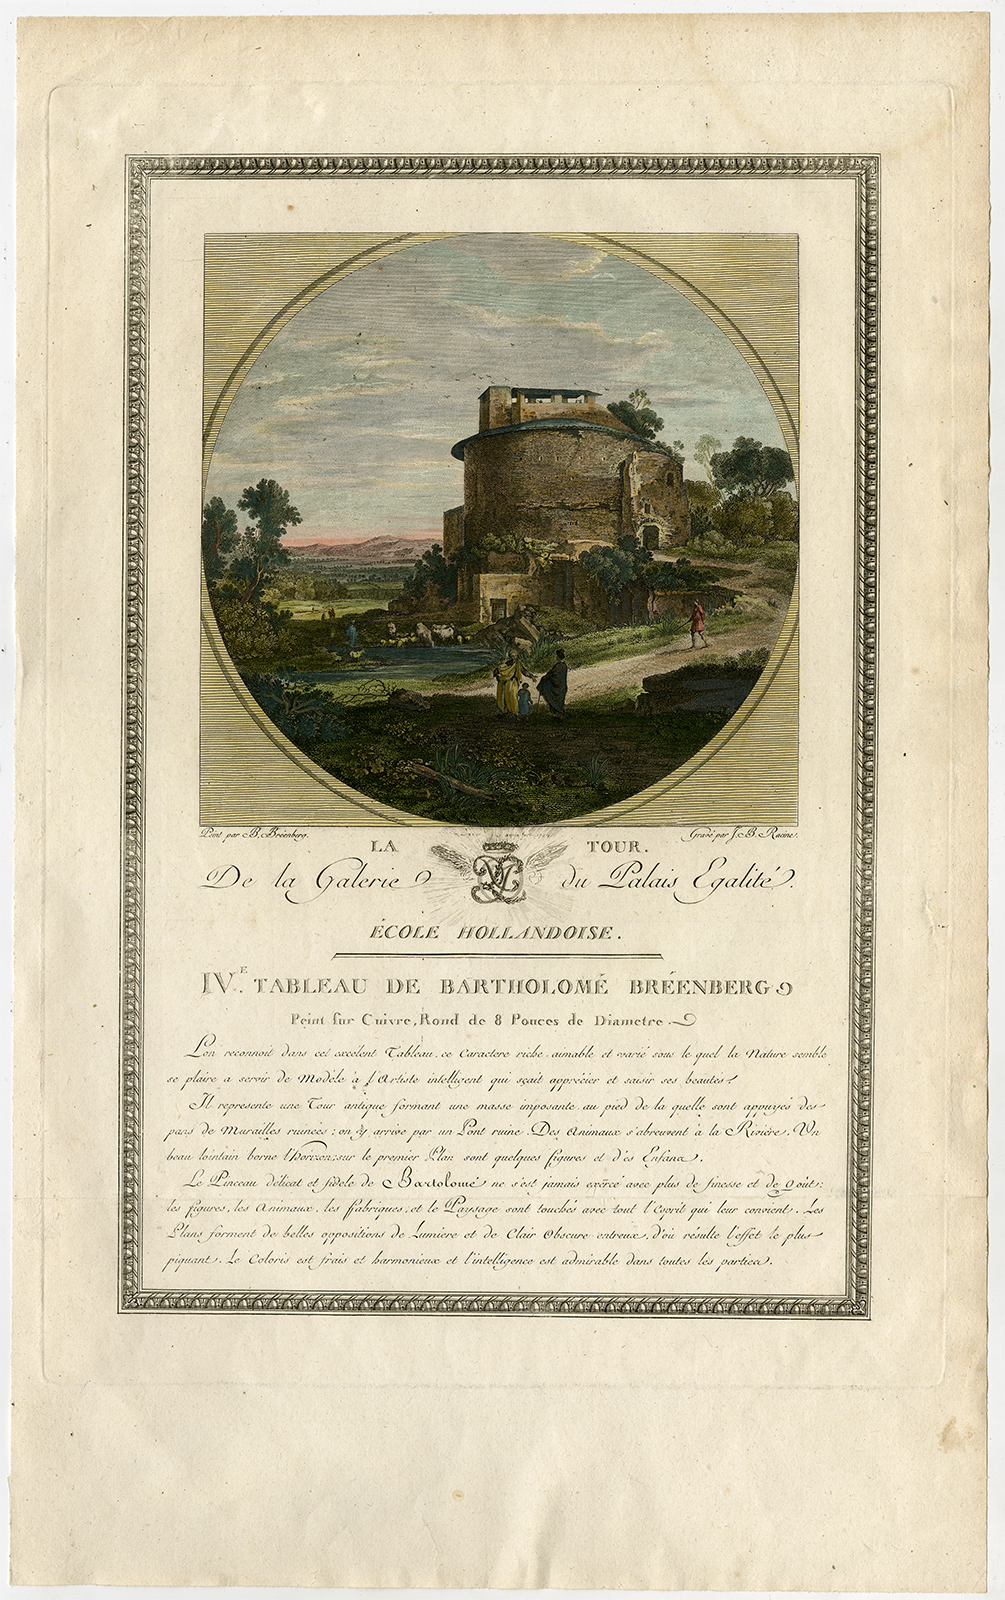 Peint par B. Bréenberg.
Gravé par J. B. Racine.
LA TOUR.
De la Galerie du Palais Egalité.
ÉCOLE HOLLANDOISE.
IV.E TABLEAU DE BARTHOLOMÉ BRÉENBERG
Peint sur Cuivre, Rond de 8 Pouces de Diametre.
L'on reconnoit dans cet excélent Tableau, ce Caractere riche, aimable et varié sous le quel la Nature semble
se plaire a servir de Modèle à l'Artiste intelligent qui sçait apprécier et saisir ses beautés.
Il represente une Tour antique formant une masse imposante, au pied de la quelle sont appuyés des
pans de Murailles ruinées; on y arrive par un Pont ruiné. Des Animaux s'abreuvent à la Rivière. Un
beau lointain borne l'horizon; sur le premier Plan sont quelques figures et des Enfans.
Le Pinceau délicat et fidele de Bartolomé ne s'est jamais exércé avec plus de finesse et de Goût:
les figures, les Animaux, les fabriques, et le Paysage sont touchés avec tout l'Esprit qui leur convient. Les
Plans forment de belles oppositions de Lumiere et de Clair Obscure entreux, d'où résulte l'effet le plus
piquant. Le Coloris est frais et harmonieux et l'intelligence est admirable dans toutes les parties.